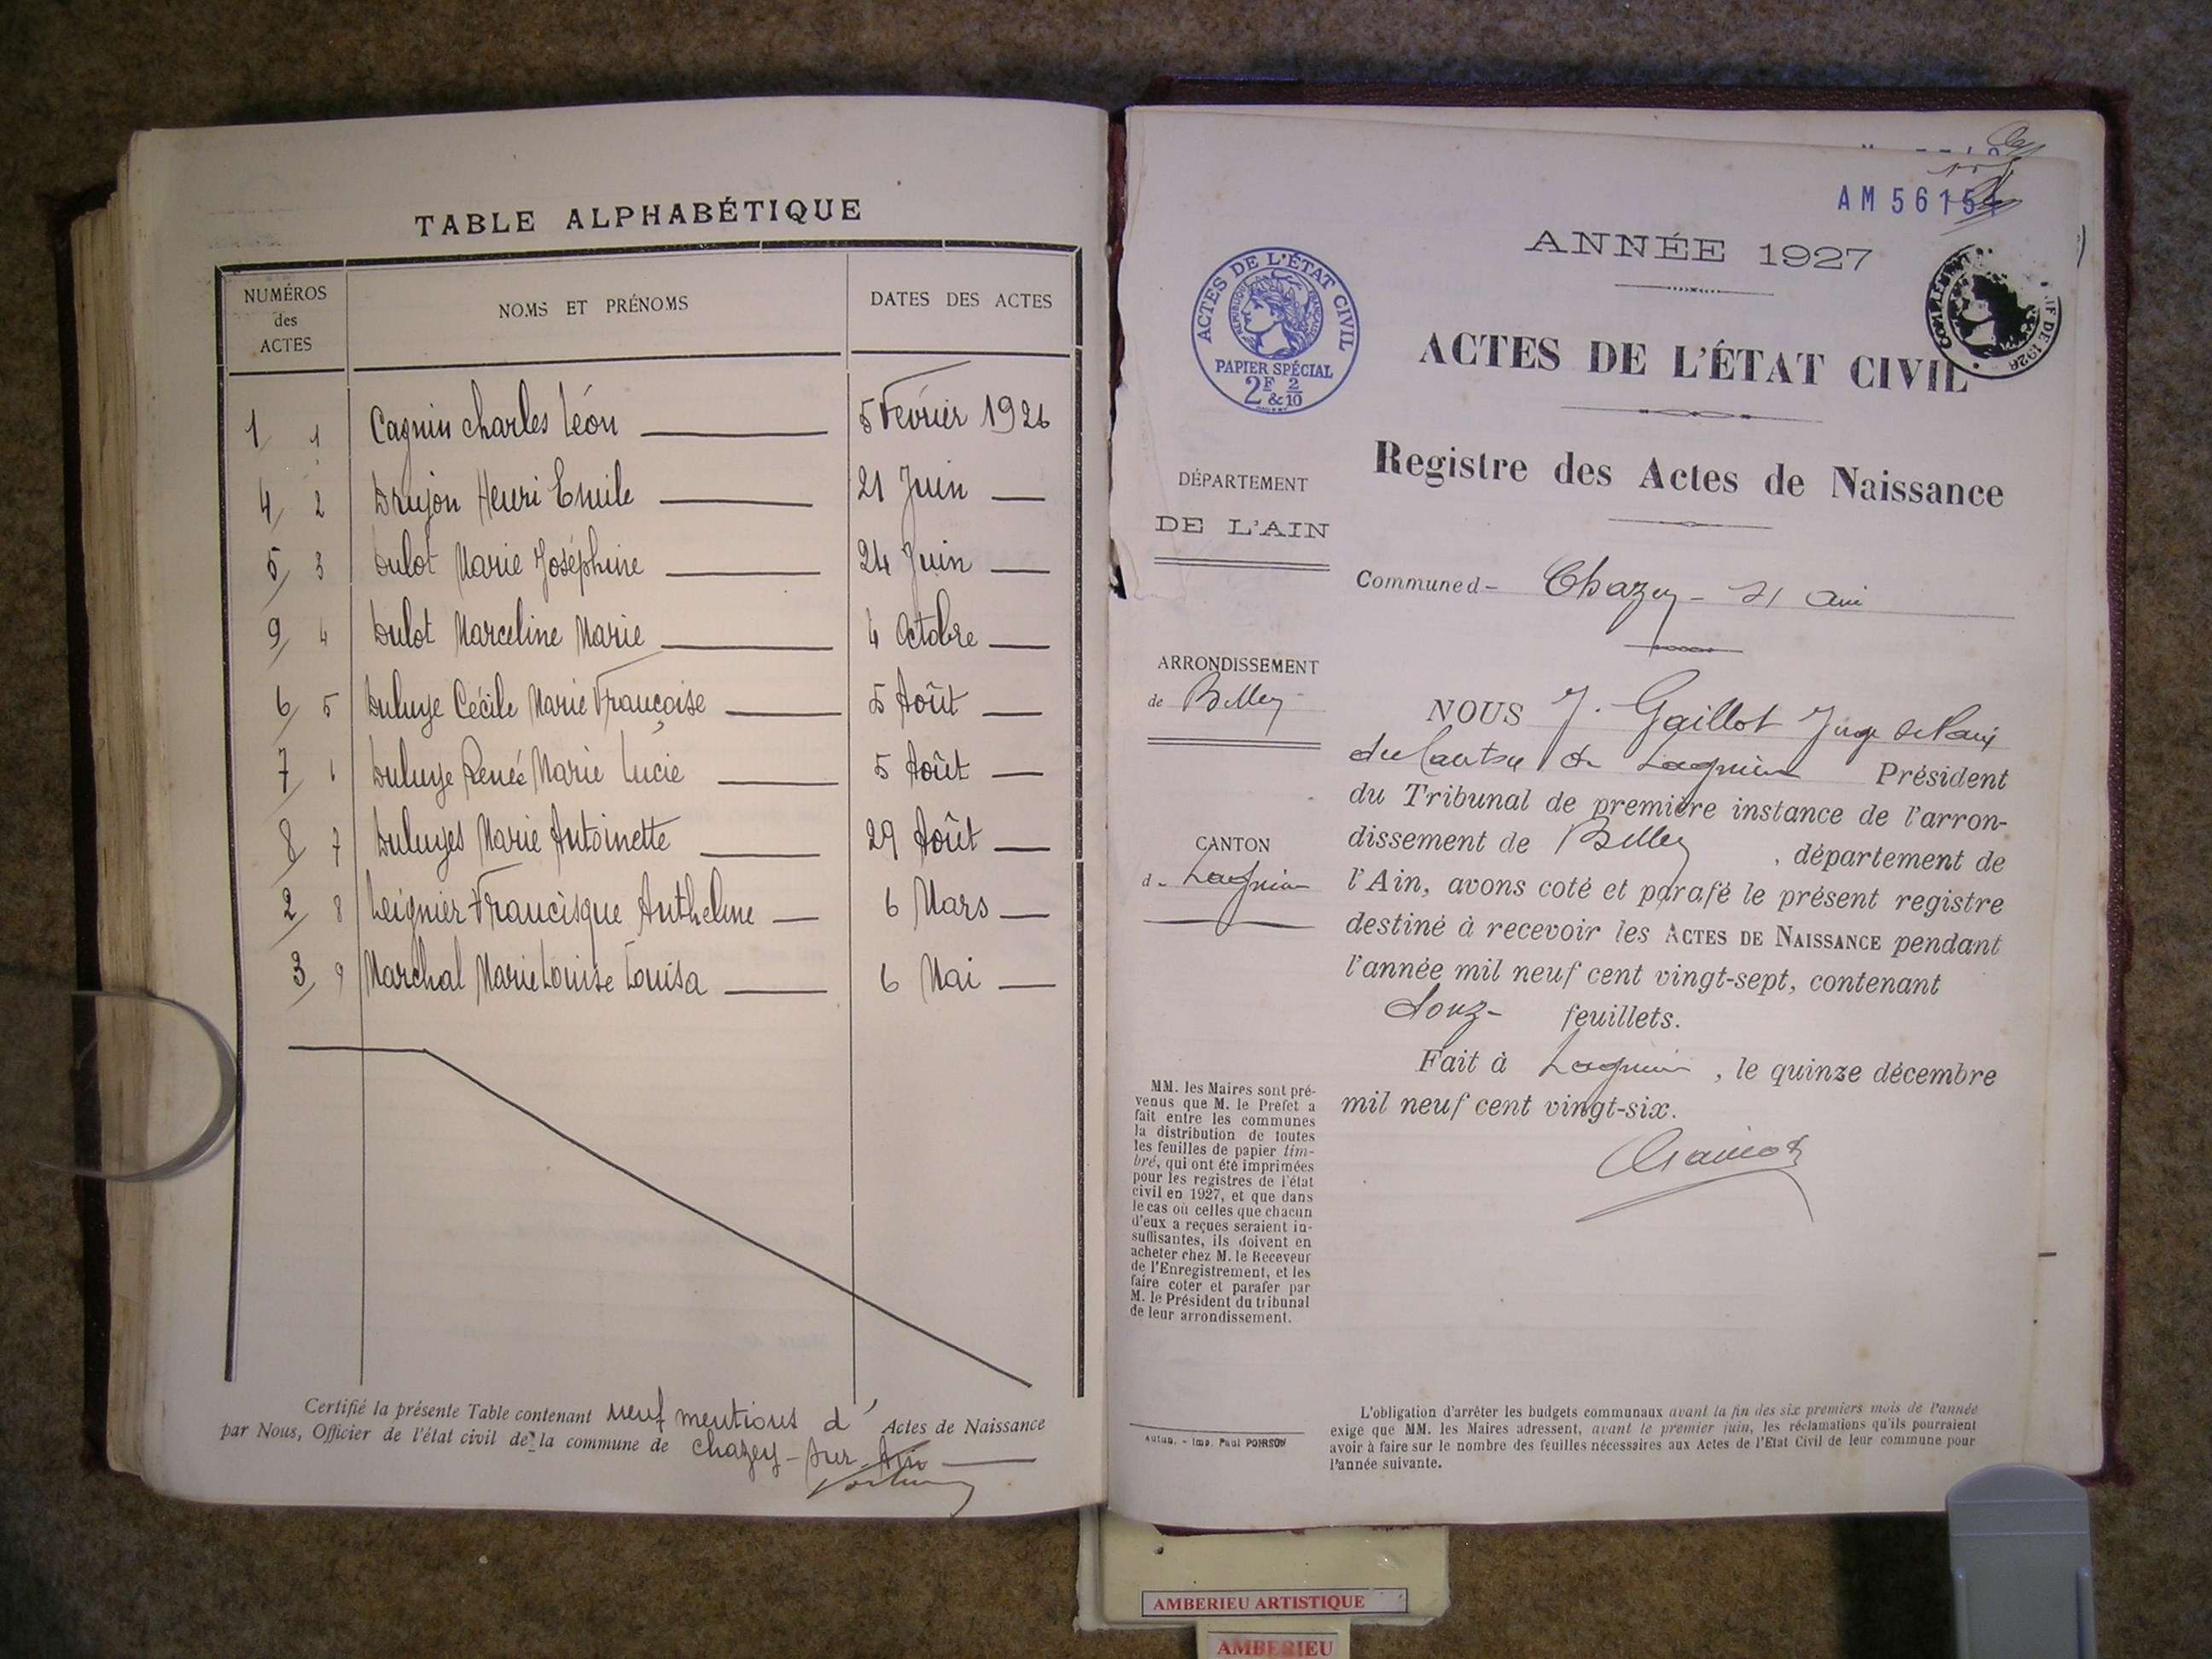 TABLE ALPHABÉTIQUE
NUMÉROS des ACTES
NOMS ET PRÉNOMS
DATES DES ACTES
1 1 Cagnin Charles Léon 5 Février 1926
4 2 Drujon Henri Emile 21 Juin
5 3 Dulot Marie Joséphine 24 Juin
9 4 Dulot Marceline Marie 4 Octobre
6 5 Duluye Cécile Marie Françoise 5 Août
7 Duluye Renée Marie Lucie 5 Août
8 7 Duluyes Marie Antoinette 29 Août
2 8 Leignier Francisque Anthelme 6 Mars
3 9 Marchal Marie Louise Louisa 6 Mai
Certifié la présente Table contenant neuf mentions d' Actes de Naissance
par Nous, Officier de l'état civil de la commune de Chazey-sur-Ain
AM 56154
ANNÉE 1927
ACTES DE L'ÉTAT CIVIL
RÉPUBLIQUE FRANÇAISE
PAPIER SPÉCIAL
2F & 2/10
ACTES DE L'ÉTAT CIVIL
Registre des Actes de Naissance
DÉPARTEMENT
DE L'AIN
Commune d- Chazey-s/ Ain
ARRONDISSEMENT
de Belley
CANTON
d- Lagnieu
NOUS J. Gaillot Juge de Paix
du Canton de Lagnieu Président
du Tribunal de première instance de l'arron-
dissement de Belley, département de
l'Ain, avons coté et parafé le présent registre
destiné à recevoir les ACTES DE NAISSANCE pendant
l'année mil neuf cent vingt-sept, contenant
douz- feuillets.
Fait à Lagnieu, le quinze décembre
mil neuf cent vingt-six.
MM. les Maires sont pré-
venus que M. le Préfet a
fait entre les communes
la distribution de toutes
les feuilles de papier tim-
bré, qui ont été imprimées
pour les registres de l'état
civil en 1927, et que dans
le cas où celles que chacun
d'eux a reçues seraient in-
suffisantes, ils doivent en
acheter chez M. le Receveur
de l'Enregistrement, et les
faire coter et parafer par
M. le Président du tribunal
de leur arrondissement.
Autun. - Imp. Paul POIRSON
L'obligation d'arrêter les budgets communaux avant la fin des six premiers mois de l'année
exige que MM. les Maires adressent, avant le premier juin, les réclamations qu'ils pourraient
avoir à faire sur le nombre des feuilles nécessaires aux Actes de l'Etat Civil de leur commune pour
l'année suivante.
AMBERIEU ARTISTIQUE
AMBERIEU